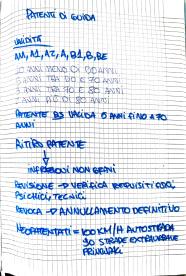 PATENTI DI GUIDA
VALIDITÀ
AM, A1, A2, A, B1, B, BE
10 ANNI MENO DI 50 ANNI
5 ANNI TRA 50 E 70 ANNI
3 ANNI TRA 70 E 80 ANNI
2 ANNI PIÙ DI 80 ANNI
PATENTE B3 VALIDA 5 ANNI FINO A 70
ANNI
RITIRO PATENTE
INFRAZIONI NON GRAVI
REVISIONE → VERIFICA REQUISITI FISICI,
PSICHICI, TECNICI
REVOCA → ANNULLAMENTO DEFINITIVO
NEOPATENTATI = 100 KM/H AUTOSTRADA
90 STRADE EXTRAURBANE
PRINCIPALI